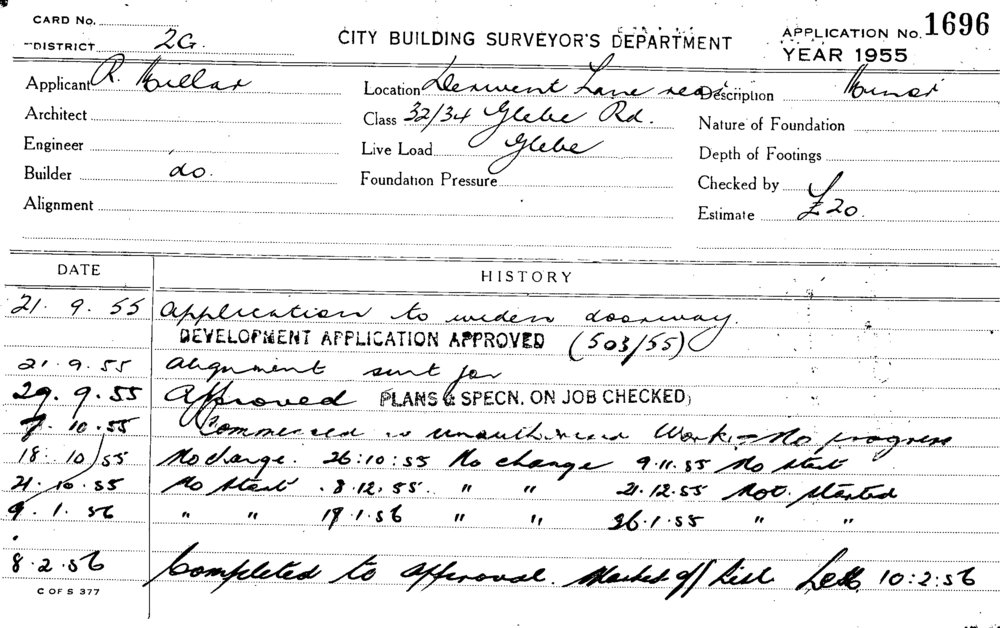 CARD No.
DISTRICT 2G.
CITY BUILDING SURVEYOR'S DEPARTMENT
APPLICATION No. 1696
YEAR 1955
Applicant R. Millar
Location Derwent Lane rear
Description Minor
Architect
Class 32/34 Glebe Rd.
Nature of Foundation
Engineer
Live Load Glebe
Depth of Footings
Builder do.
Foundation Pressure
Checked by
Alignment
Estimate £20.
DATE HISTORY
21. 9. 55 Application to widen doorway.
DEVELOPMENT APPLICATION APPROVED (503/55)
21. 9. 55 Alignment sent for
29. 9. 55 Approved PLANS & SPECN. ON JOB CHECKED
7. 10. 55 Commenced Work No progress
18. 10/55 No change. 26:10:55 No change 9.11.55 No start
21. 10. 55 No start . 8.12.55. " " 21.12.55 Not. started
9. 1. 56 " " 19.1.56 " " 26.1.55 " "
8. 2. 56 Completed to approval. Marked off List 10:2:56
C OF S 377